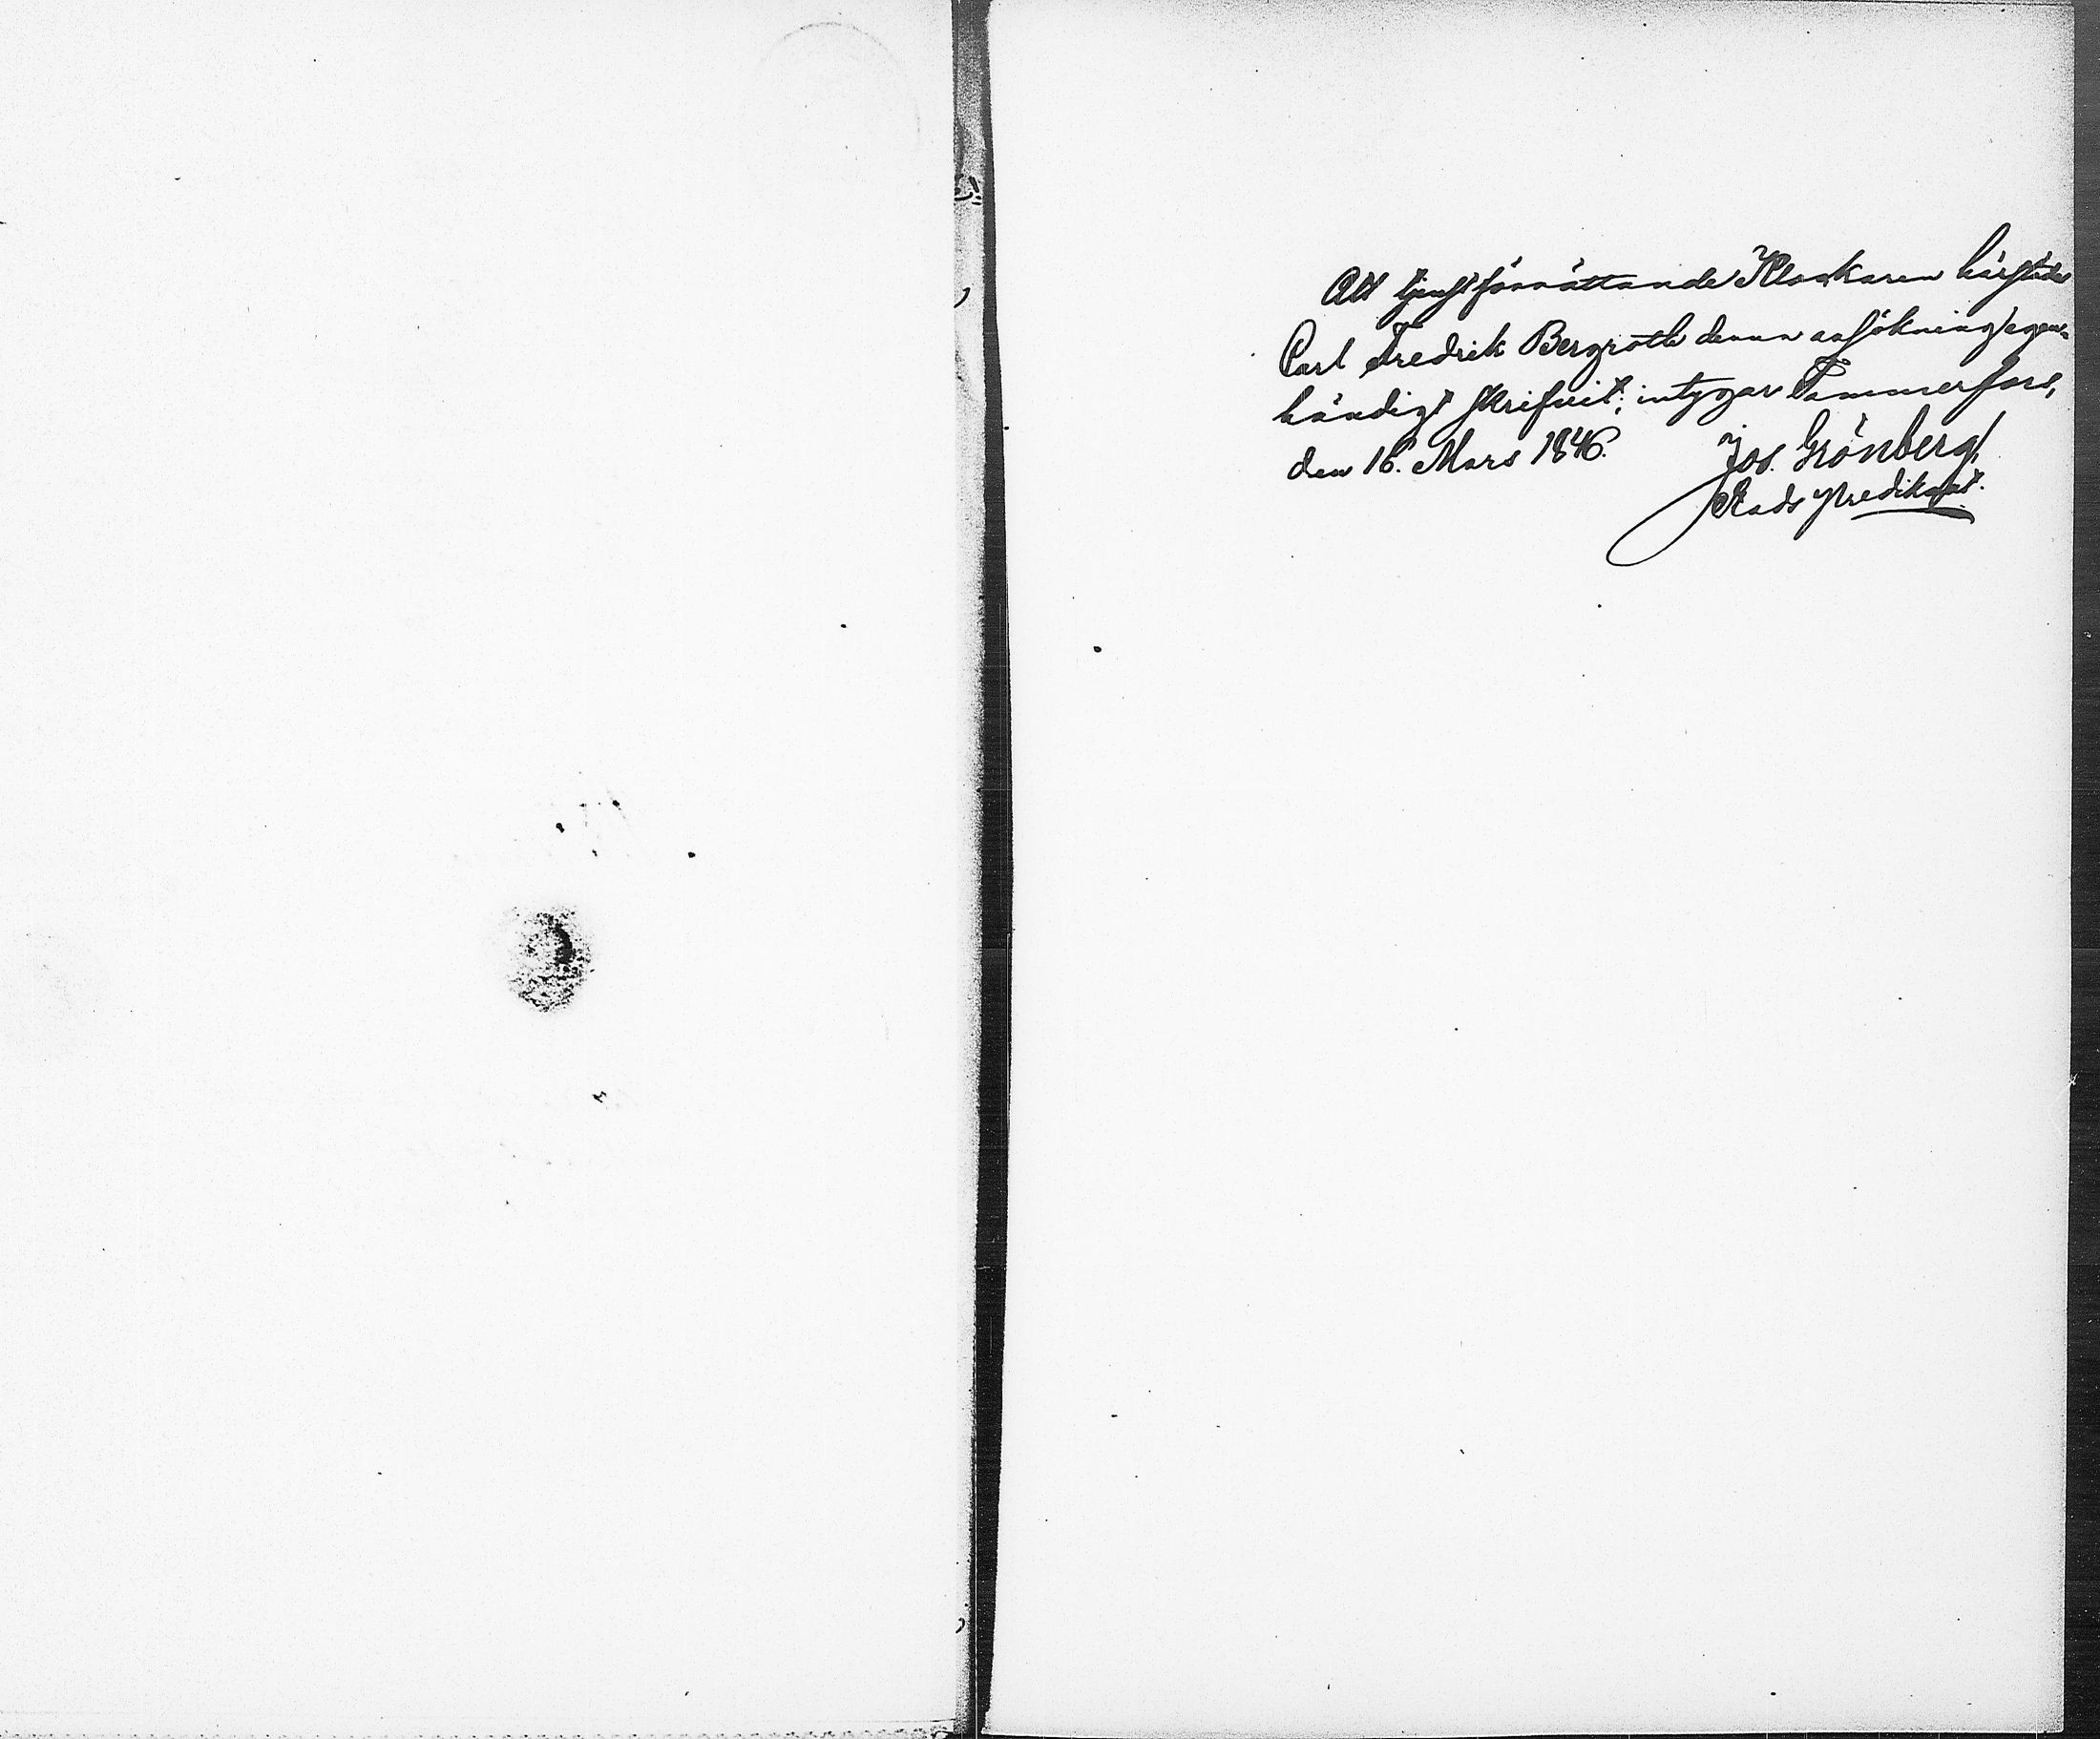 Att tjenstförrättande Klockaren härstädes
Carl Fredrik Bergroth denna ansökning egen-
händigt skrifvit; intygar Tammerfors,
den 16. Mars 1846.
Jos. Grönberg,
Stads Predikant.